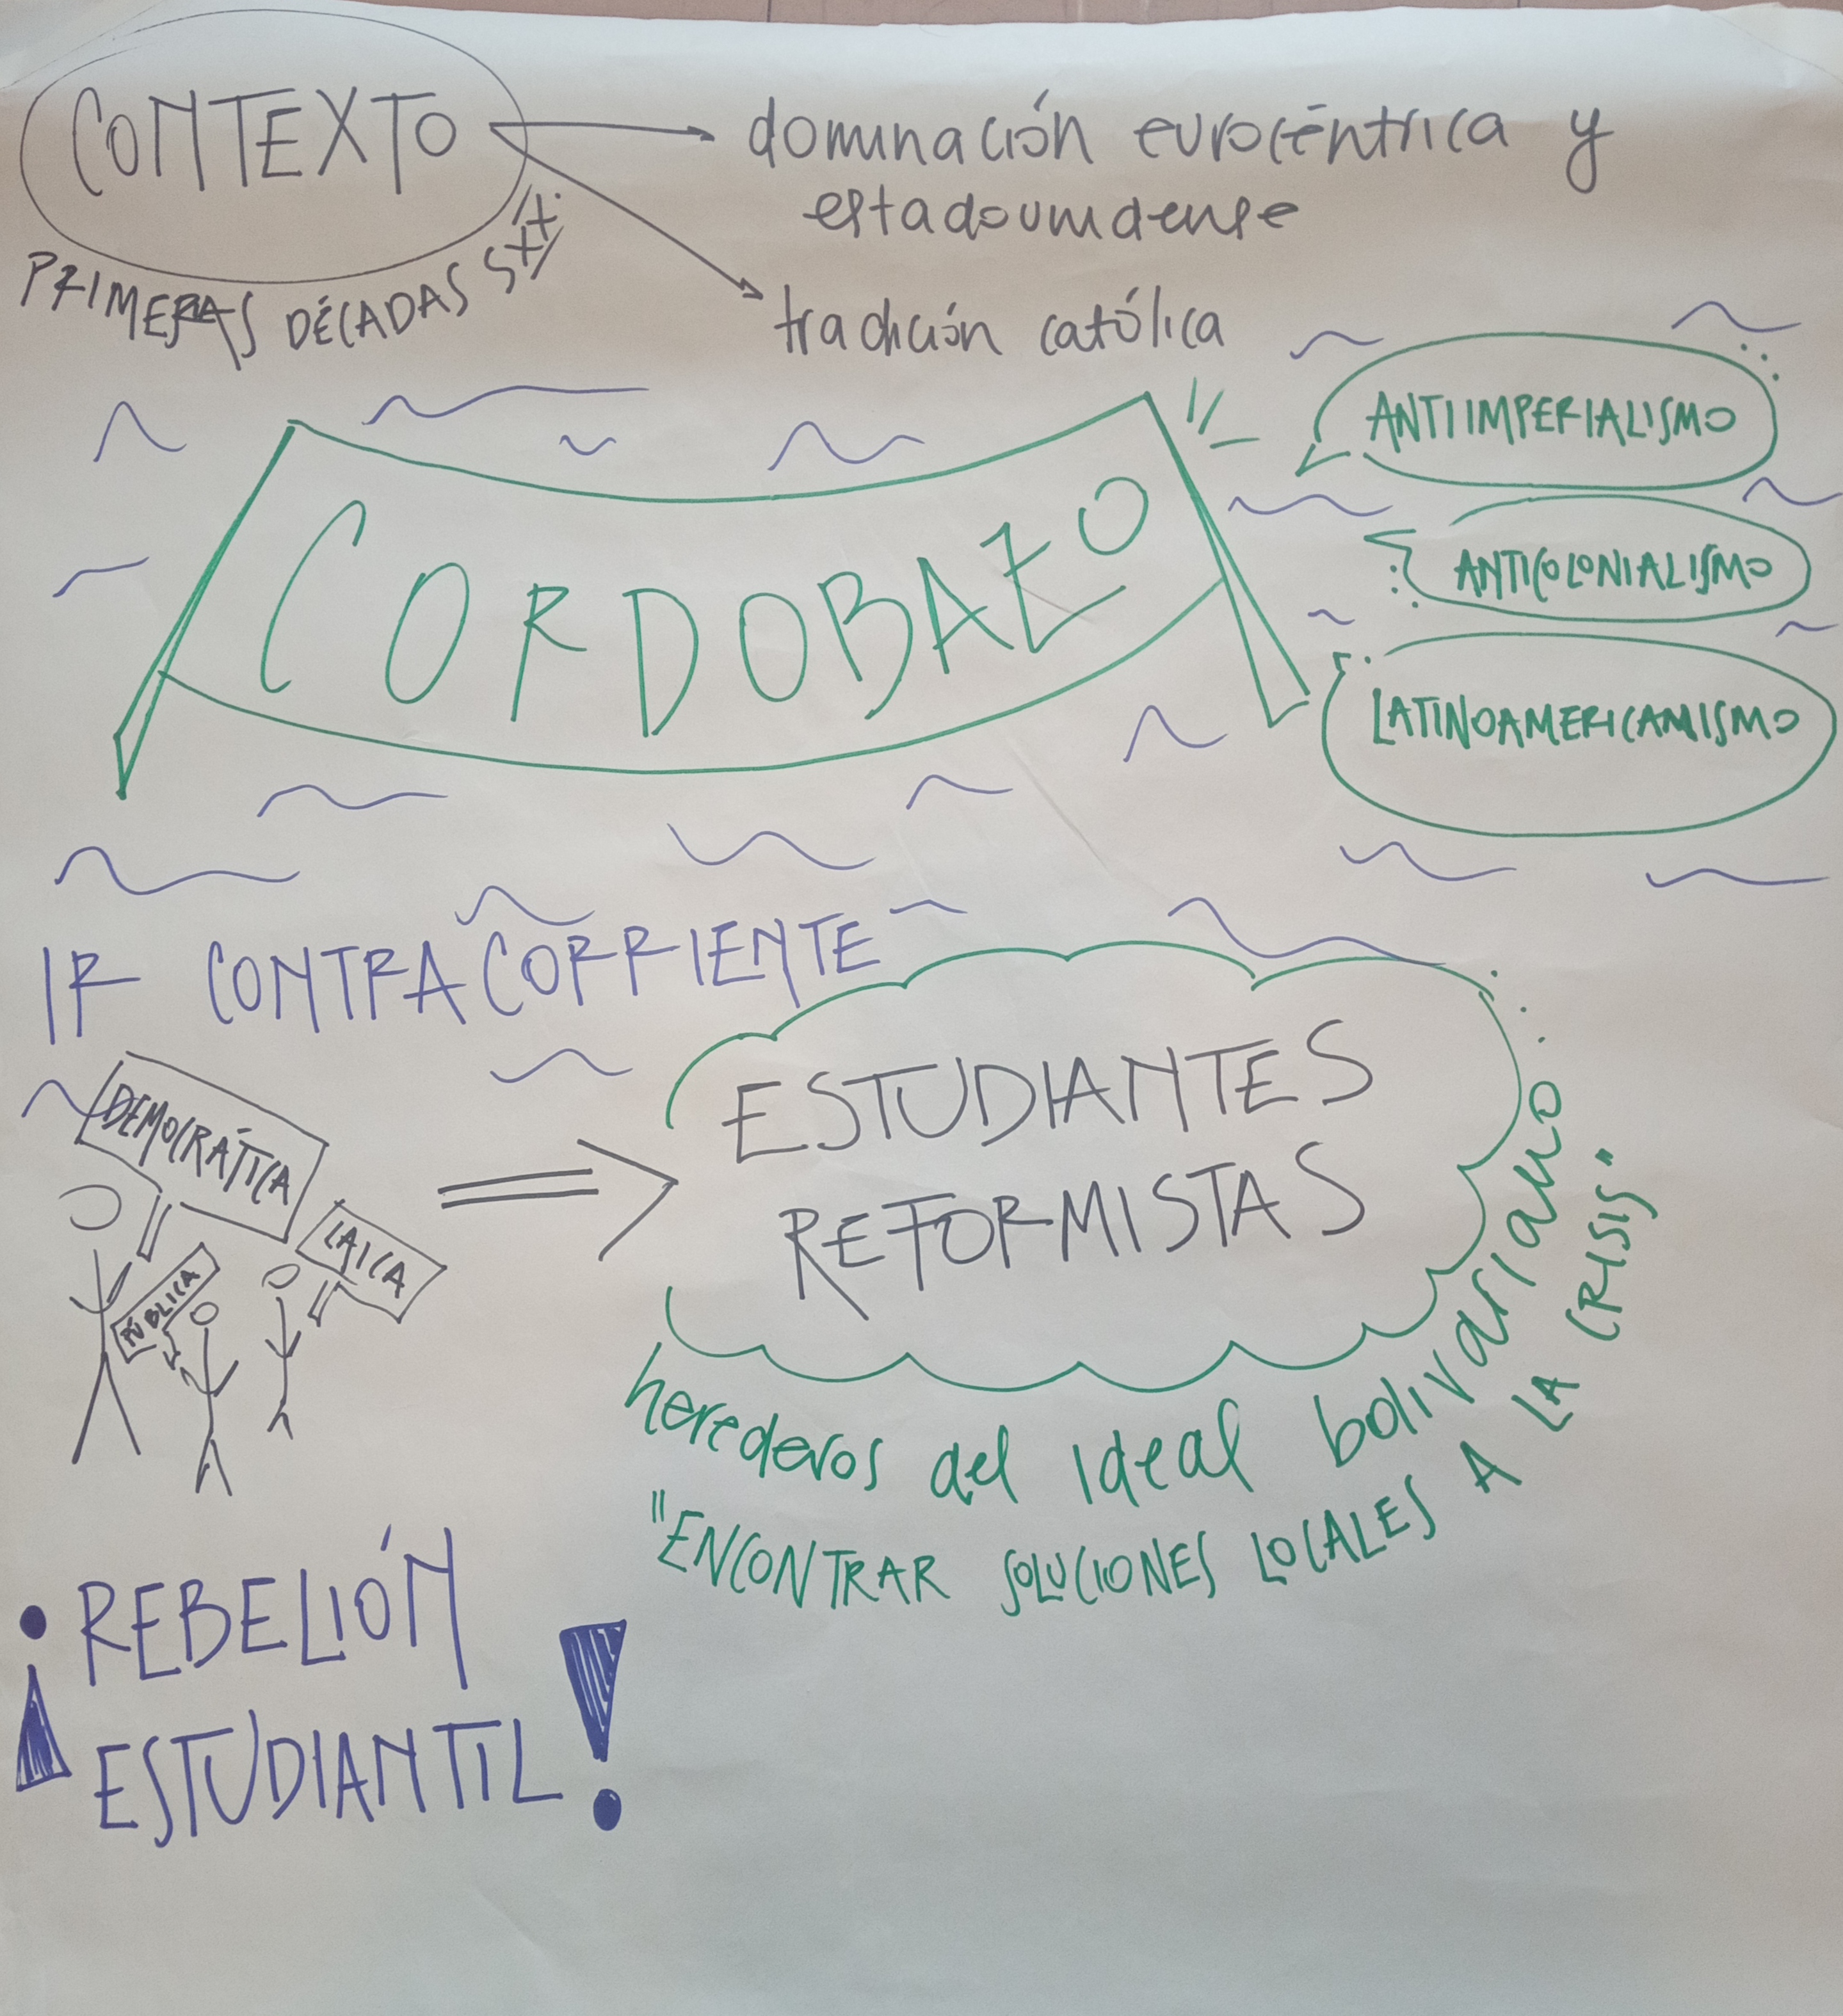 CONTEXTO
PRIMERAS DÉCADAS S XX
dominación eurocéntrica y
estadounidense
tradición católica
CORDOBAZO
ANTIIMPERIALISMO
ANTICOLONIALISMO
LATINOAMERICANISMO
IR CONTRACORRIENTE
DEMOCRÁTICA
PÚBLICA
LAICA
ESTUDIANTES
REFORMISTAS
herederos del ideal bolivariano
"ENCONTRAR SOLUCIONES LOCALES A LA CRISIS"
¡REBELIÓN
ESTUDIANTIL!